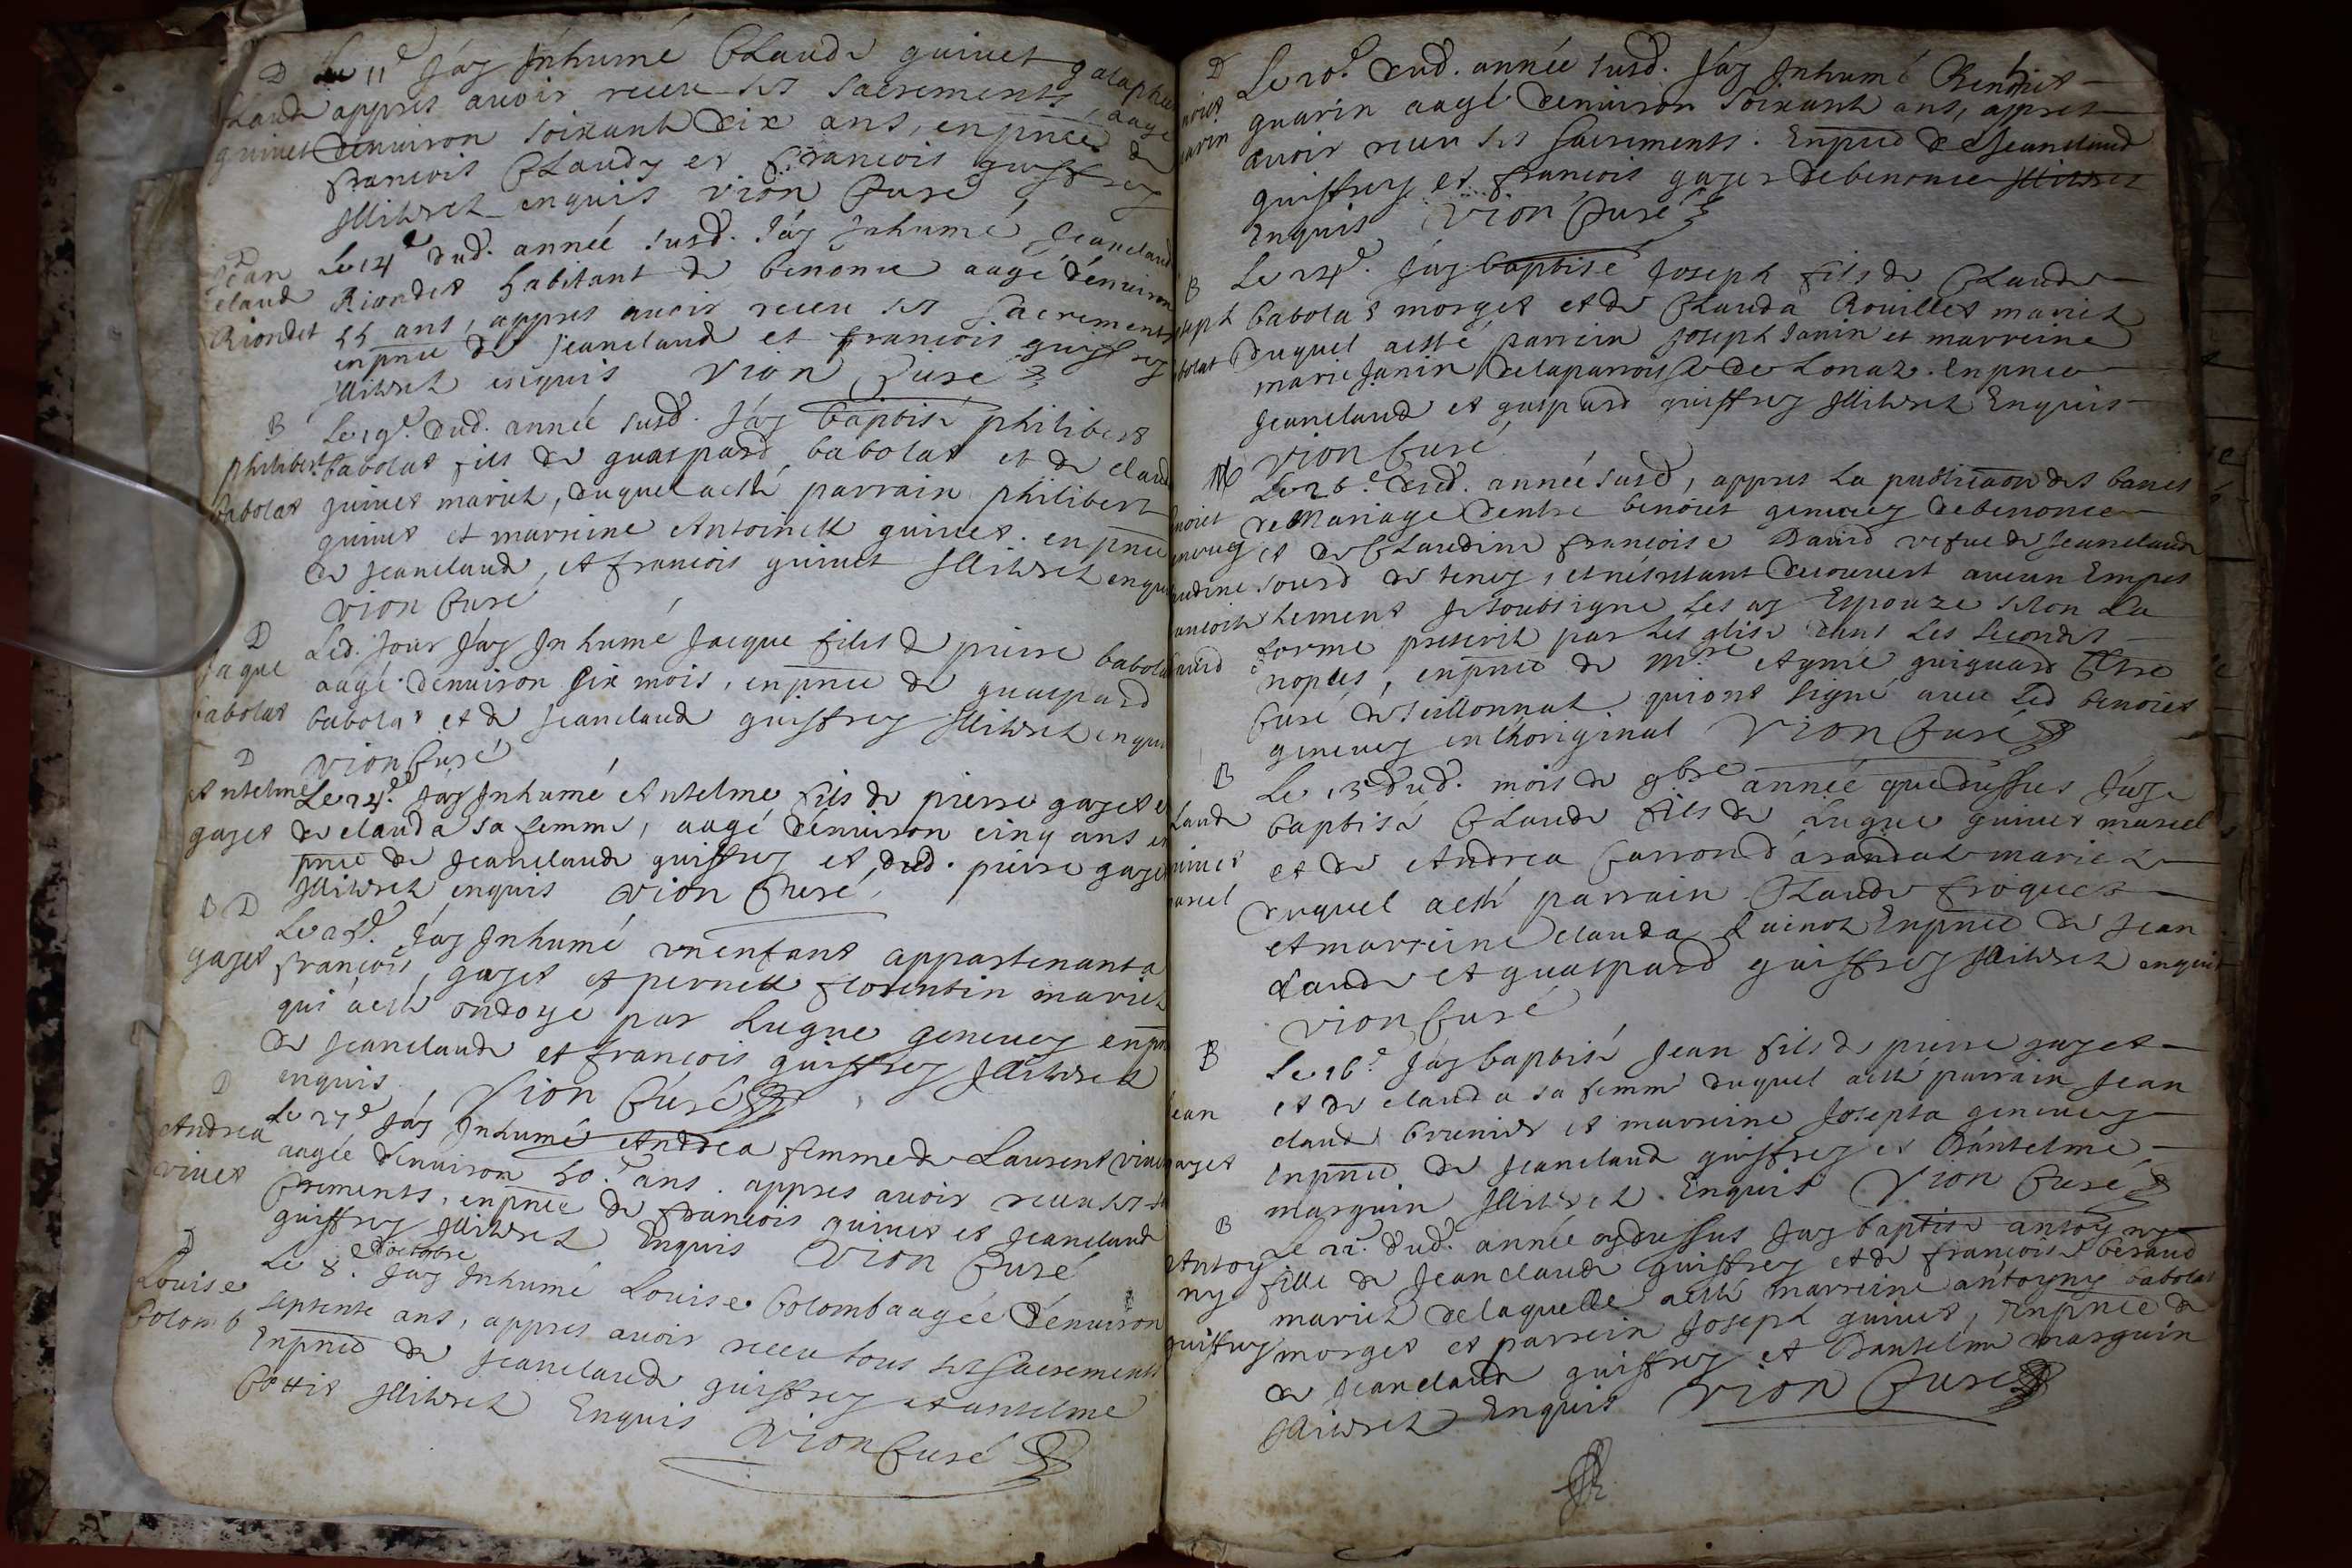 D Le 11e J'ay Inhumé Claude guinet galaphin
Claude appres auoir receu ses sacrements, aagé
guinet d'enuiron soixante dix ans, enpnce de
francois Claudy et francois guiffrey
illiterez enquis Vion Curé
D Le 14e dud. année susd. J'ay Inhumé Jeanclaude
Jean claude Riondet habitant de benonce aagé d'enuiron
Riondet 55 ans, appres auoir receu ses sacrements
enpnce de Jeanclaude et francois guiffrey
illiterez enquis Vion Curé
B Le 19e. dud. année susd. J'ay baptisé philibert
philibert babolat fils de guaspard babolat et de claud
babolat guinet mariez, duquel a esté parrain philibert
guinet et marreine Antoinette guinet. en pnce
de Jeanclaude, et francois guinet illiterez enquis
Vion Curé
D Led. Jour J'ay Inhumé Jacque fils de pierre babolat
Jaque aagé d'enuiron six mois, enpnce de guaspard
babolat babolat et de Jeanclaude guiffrey illiterez enquis
Vion Curé
D
Antelme Le 24e. J'ay Inhumé Antelme fils de pierre gazet et
gazet de clauda sa femme, aagé d'enuiron cinq ans en
pnce de Jeanclaude guiffrey et dud. pierre gazet
illiterez enquis Vion Curé
B D Le 25e. J'ay Inhumé vn enfant appartenant a
gazet francois gazet et pernette florentin mariez
qui a esté ondoyé par Lugue geneuey enpnce
de Jeanclaude et francois guiffrey illiterez
enquis Vion Curé
D Le 27e J'ay Inhumé Andrea femme de Laurent viuet
Andrea aagée d'enuiron 50. ans. appres auoir receu ses sa
viuet crements, enpnce de francois guinet et Jeanclaude
guiffrey illiterez Enquis Vion Curé
D Le 8e. d'octobre J'ay Inhumé Louise Colomb aagée d'enuiron
Louise septente ans, appres auoir receu tous ses sacrements
Colomb Enpnce de Jeanclaude guiffrey et antelme
illiterez Enquis
Vion Curé
D Le 20e. dud. année susd. J'ay Inhumé Benoiet
guarin aagé d'enuiron soixante ans, appres
auoir receu ses sacrements. Enpnce de Jeanclaude
guiffrey et francois gazet de benonce illiterez
Enquis Vion Curé
B Le 24e. J'ay baptisé Joseph fils de Claude
babolat morget et de Clauda Rouillet mariez
duquel a esté parrein Joseph Janin et marreine
marie Janin de la parroisse de Lonaz. Enpnce
Jeanclaude et gaspard guiffrey illiterez Enquis
Vion Curé
M Le 26e. dud. année susd, appres La publicaon des bancs
de Mariage d'entre benoiet geneuey de benonce
et de Claudine francoise Dauid vefue de Jeanclaude
sourd de teney, et n'estant decouuert aucun Empes
chement Je soubsigne Les ay Espouze selon La
forme prescrite par L'esglise dans Les secondes
nopces, enpnce de Mre Aymé guiguard Ptre
Curé de seillonnat qui ont signé auec Led benoiet
geneuey en L'horiginal Vion Curé
B Le 13e dud. mois de 9bre année que dessus J'ay
baptisé Claude fils de Lugue guinet marcel
et de Andrea Carrond d'arandat mariez
duquel a esté parrain Claude froquet
et marreine clauda Enpnce de Jean
claude et guaspard guiffrey illiterez enquis
Vion Curé
B Le 16e J'ay baptisé Jean fils de pierre gazet
Jean et de clauda sa femme duquel a esté parrain Jean
claude brunier et marreine Josepta geneuey
gazet Enpnce de Jeanclaude guiffrey et d'antelme
marguin illiterez. Enquis Vion Curé
B Le 22e. dud. année cy dessus J'ay baptisé antoyny
Antoy fille de Jeanclaude guiffrey et de francoise beraud
ny mariez de laquelle a esté marreine antoyny babolat
guiffrey morget et parrein Joseph guinet, Enpnce de
de Jeanclaude guiffrey et D'antelme marguin
illiterez Enquis Vion Curé